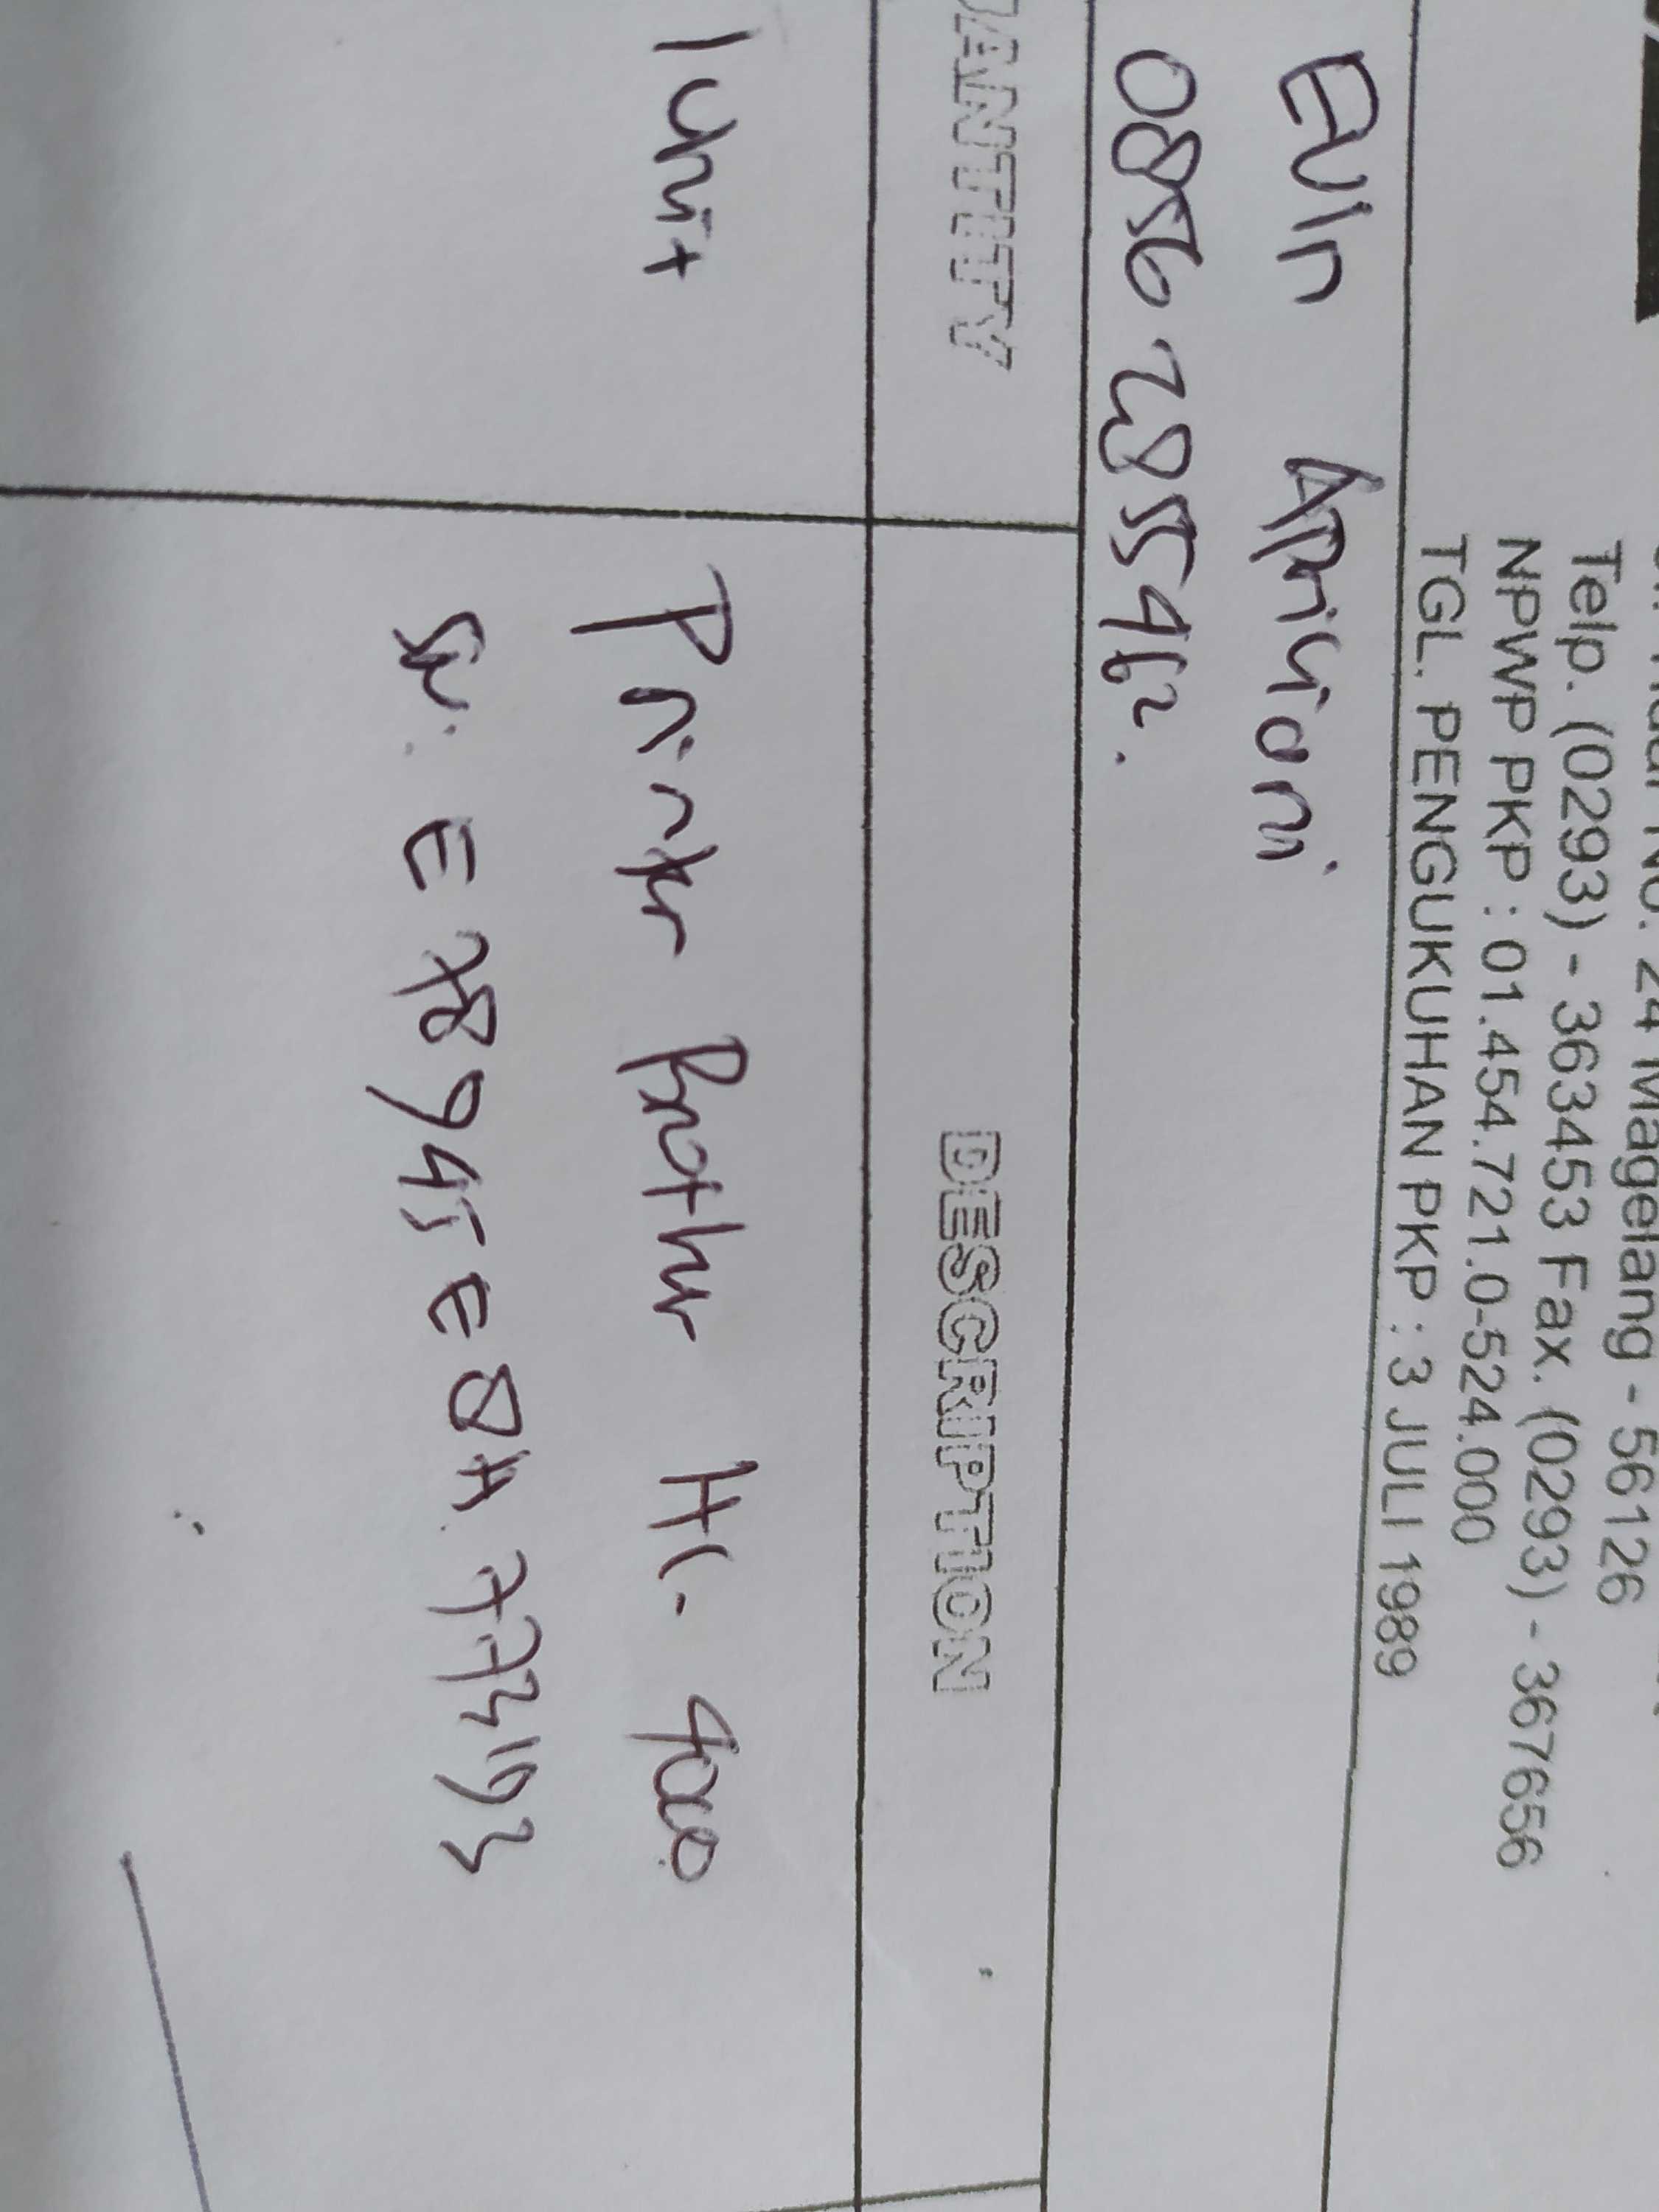 No. 24 Magelang - 56126
Telp. (0293) - 363453 Fax. (0293) - 367656
NPWP PKP : 01.454.721.0-524.000
TGL. PENGUKUHAN PKP : 3 JULI 1989
Evin Apriliani
0856 2855462.
ANTITY DESCRIPTION
1 unit Printer Brother HL-
SN: E78945E8H773193